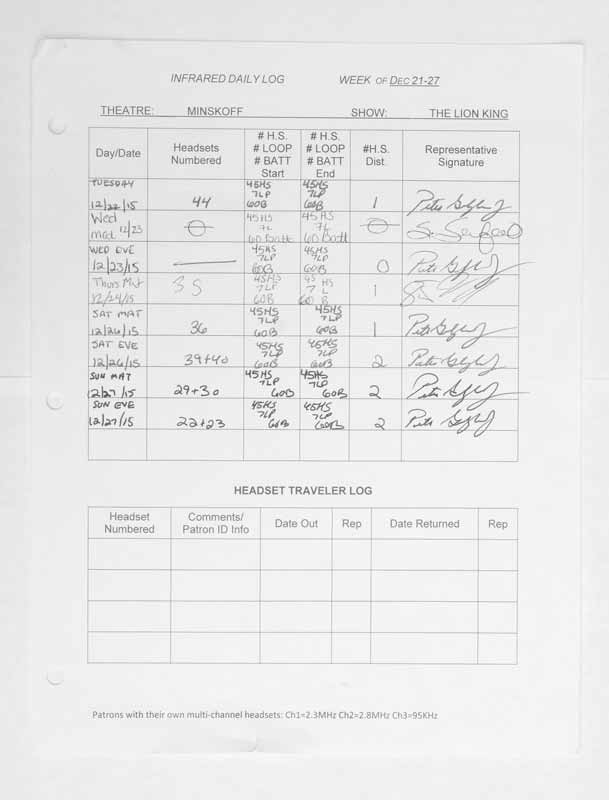 INFRARED DAILY LOG WEEK OF DEC 21-27
THEATRE: MINSKOFF SHOW: THE LION KING
Day/Date
Headsets
Numbered
# H.S.
# LOOP
# BATT
Start
# H.S.
# LOOP
# BATT
End
#H.S.
Dist.
Representative
Signature
TUESDAY
12/22/15
44
45HS
7LP
60B
45HS
7LP
60B
1
Wed
mat 12/23
45HS
7L
60 Batt
45 HS
7L
60 Batt
WED EVE
12/23/15
45HS
7LP
60B
45HS
7LP
60B
0
Thurs Mat
12/24/15
35
45HS
7LP
60B
45 HS
7 L
60 B
1
SAT MAT
12/26/15
36
45HS
7LP
60B
45HS
7LP
60B
1
SAT EVE
12/26/15
39+40
45HS
7LP
60B
45HS
7LP
60B
2
SUN MAT
12/27/15
29+30
45HS
7LP
60B
45HS
7LP
60B
2
SUN EVE
12/27/15
22+23
45HS
7LP
60B
45HS
7LP
60B
2
HEADSET TRAVELER LOG
Headset
Numbered
Comments/
Patron ID Info
Date Out
Rep
Date Returned
Rep
Patrons with their own multi-channel headsets: Ch1=2.3MHz Ch2=2.8MHz Ch3=95KHz